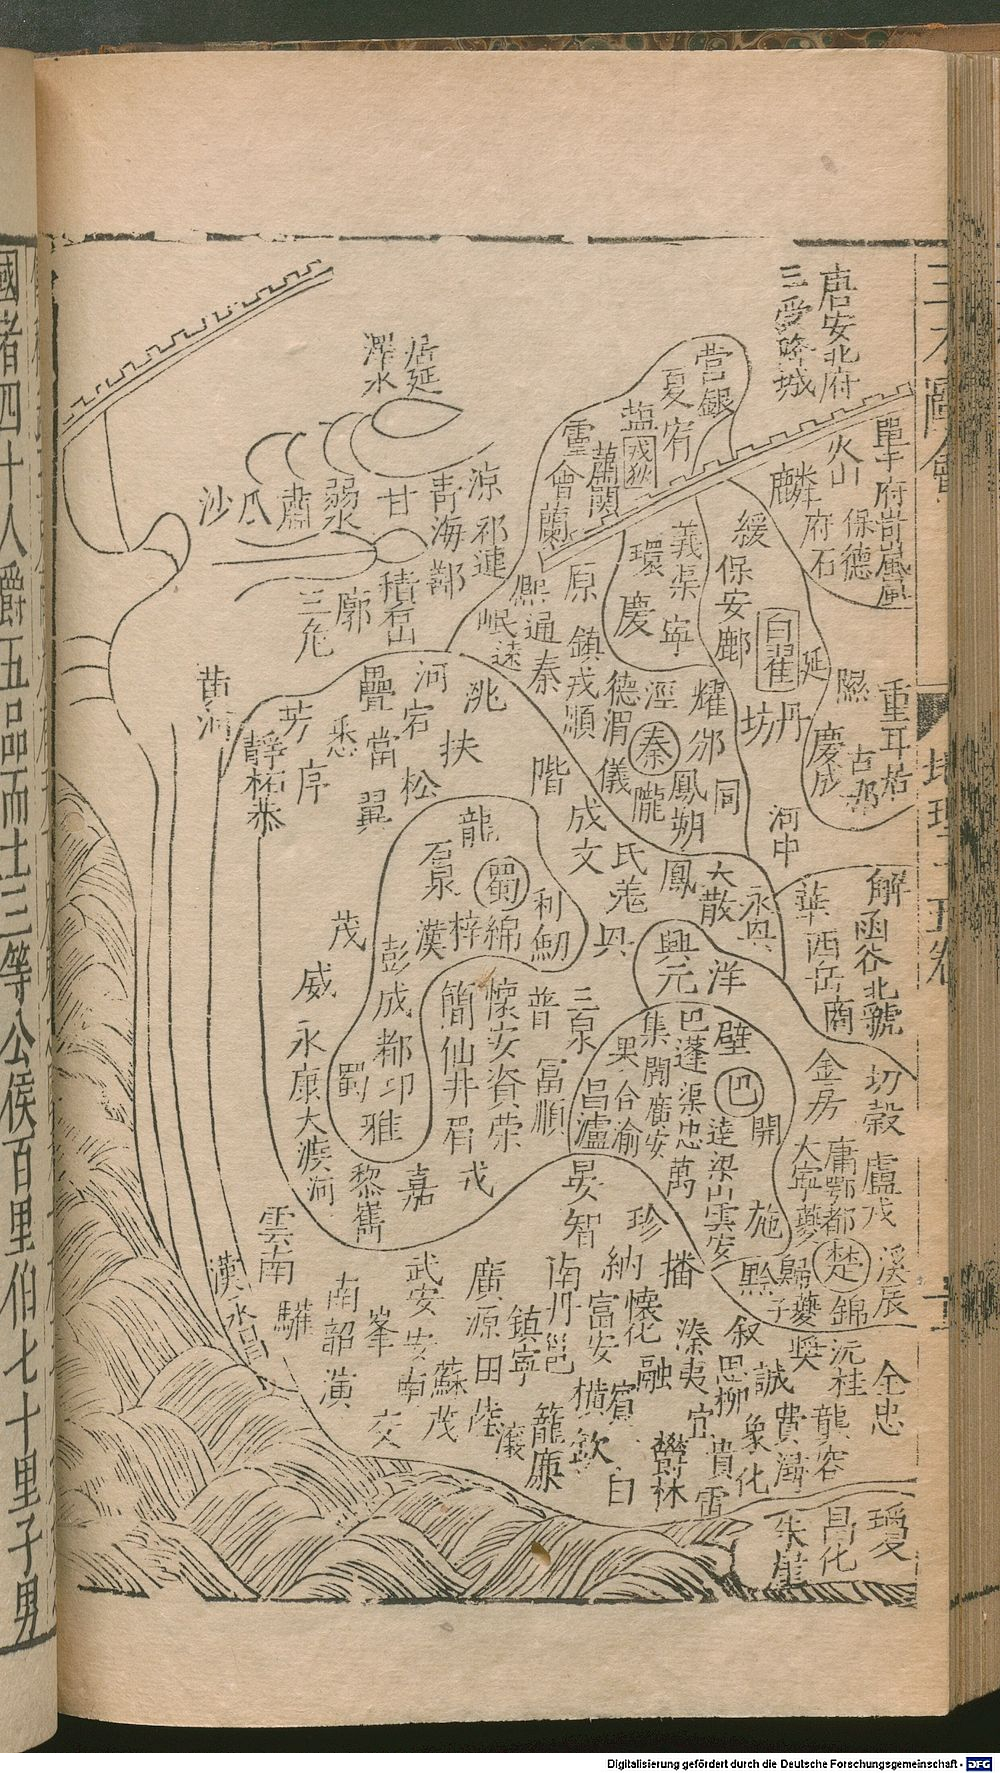 唐安北府
三受降城
單于府岢嵐嵐
火山
保德
麟
府石
居延
澤水
當銀
夏
宥
塩
戎狄
靈
蕭關
會蘭
沙
瓜
肅
弱水
甘
青海
涼
祁連
鄯
積石山
廓
三危
黄河
綏
保安鄜
白翟
延
丹
坊
隰
慶成
重耳
河中
義渠
環
慶
寧
原
熙
通
秦
岷
遠
鎮戎順
德
渭
儀
涇
秦
隴
耀
邠
鳳翔
同
鳳
大散
永興
疊
河
宕
洮
芳
悉
當
松
扶
翼
階
成
文
氐羌
靜柘恭
龍
石泉
蜀
漢
梓
綿
利
劒
興元
洋
華
西岳
商
解
函谷北虢
茂
威
永康
大渡河
彭
成都
蜀
邛
雅
簡
仙井
眉
懷安
資
榮
普
富順
三泉
集
巴
蓬
壁
巴
果
合
渝
昌
瀘
閬
廣安
渠
忠
萬
達
梁山
雲安
開
金
房
大寧
夔
庸
鄂都
盧戎
楚
錦
溪
辰
施
黔
歸
夔子
黎
嶲
嘉
戎
雲南
漢永昌
驩
南詔
演
峯
交
武安
安南
蘇茂
廣源
田
南丹
邕
鎮寧
籠
廉
智
珍
納
富安
橫
欽
賓
白
懷化
融
鬱林
播
溱
夷
宜
貴
雷
敘
思
柳
象
化
誠
費
潯
獎
沅
桂
龔
容
全
忠
瓊
昌化
朱崖
三才圖會
地理十五卷
國者四十人爵五品而土三等公侯百里伯七十里子男
Digitalisierung gefördert durch die Deutsche Forschungsgemeinschaft - DFG